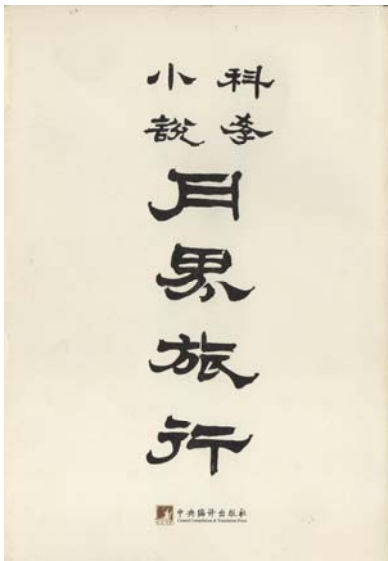 科学
小說
月界旅行
中央编译出版社
Central Compilation & Translation Press